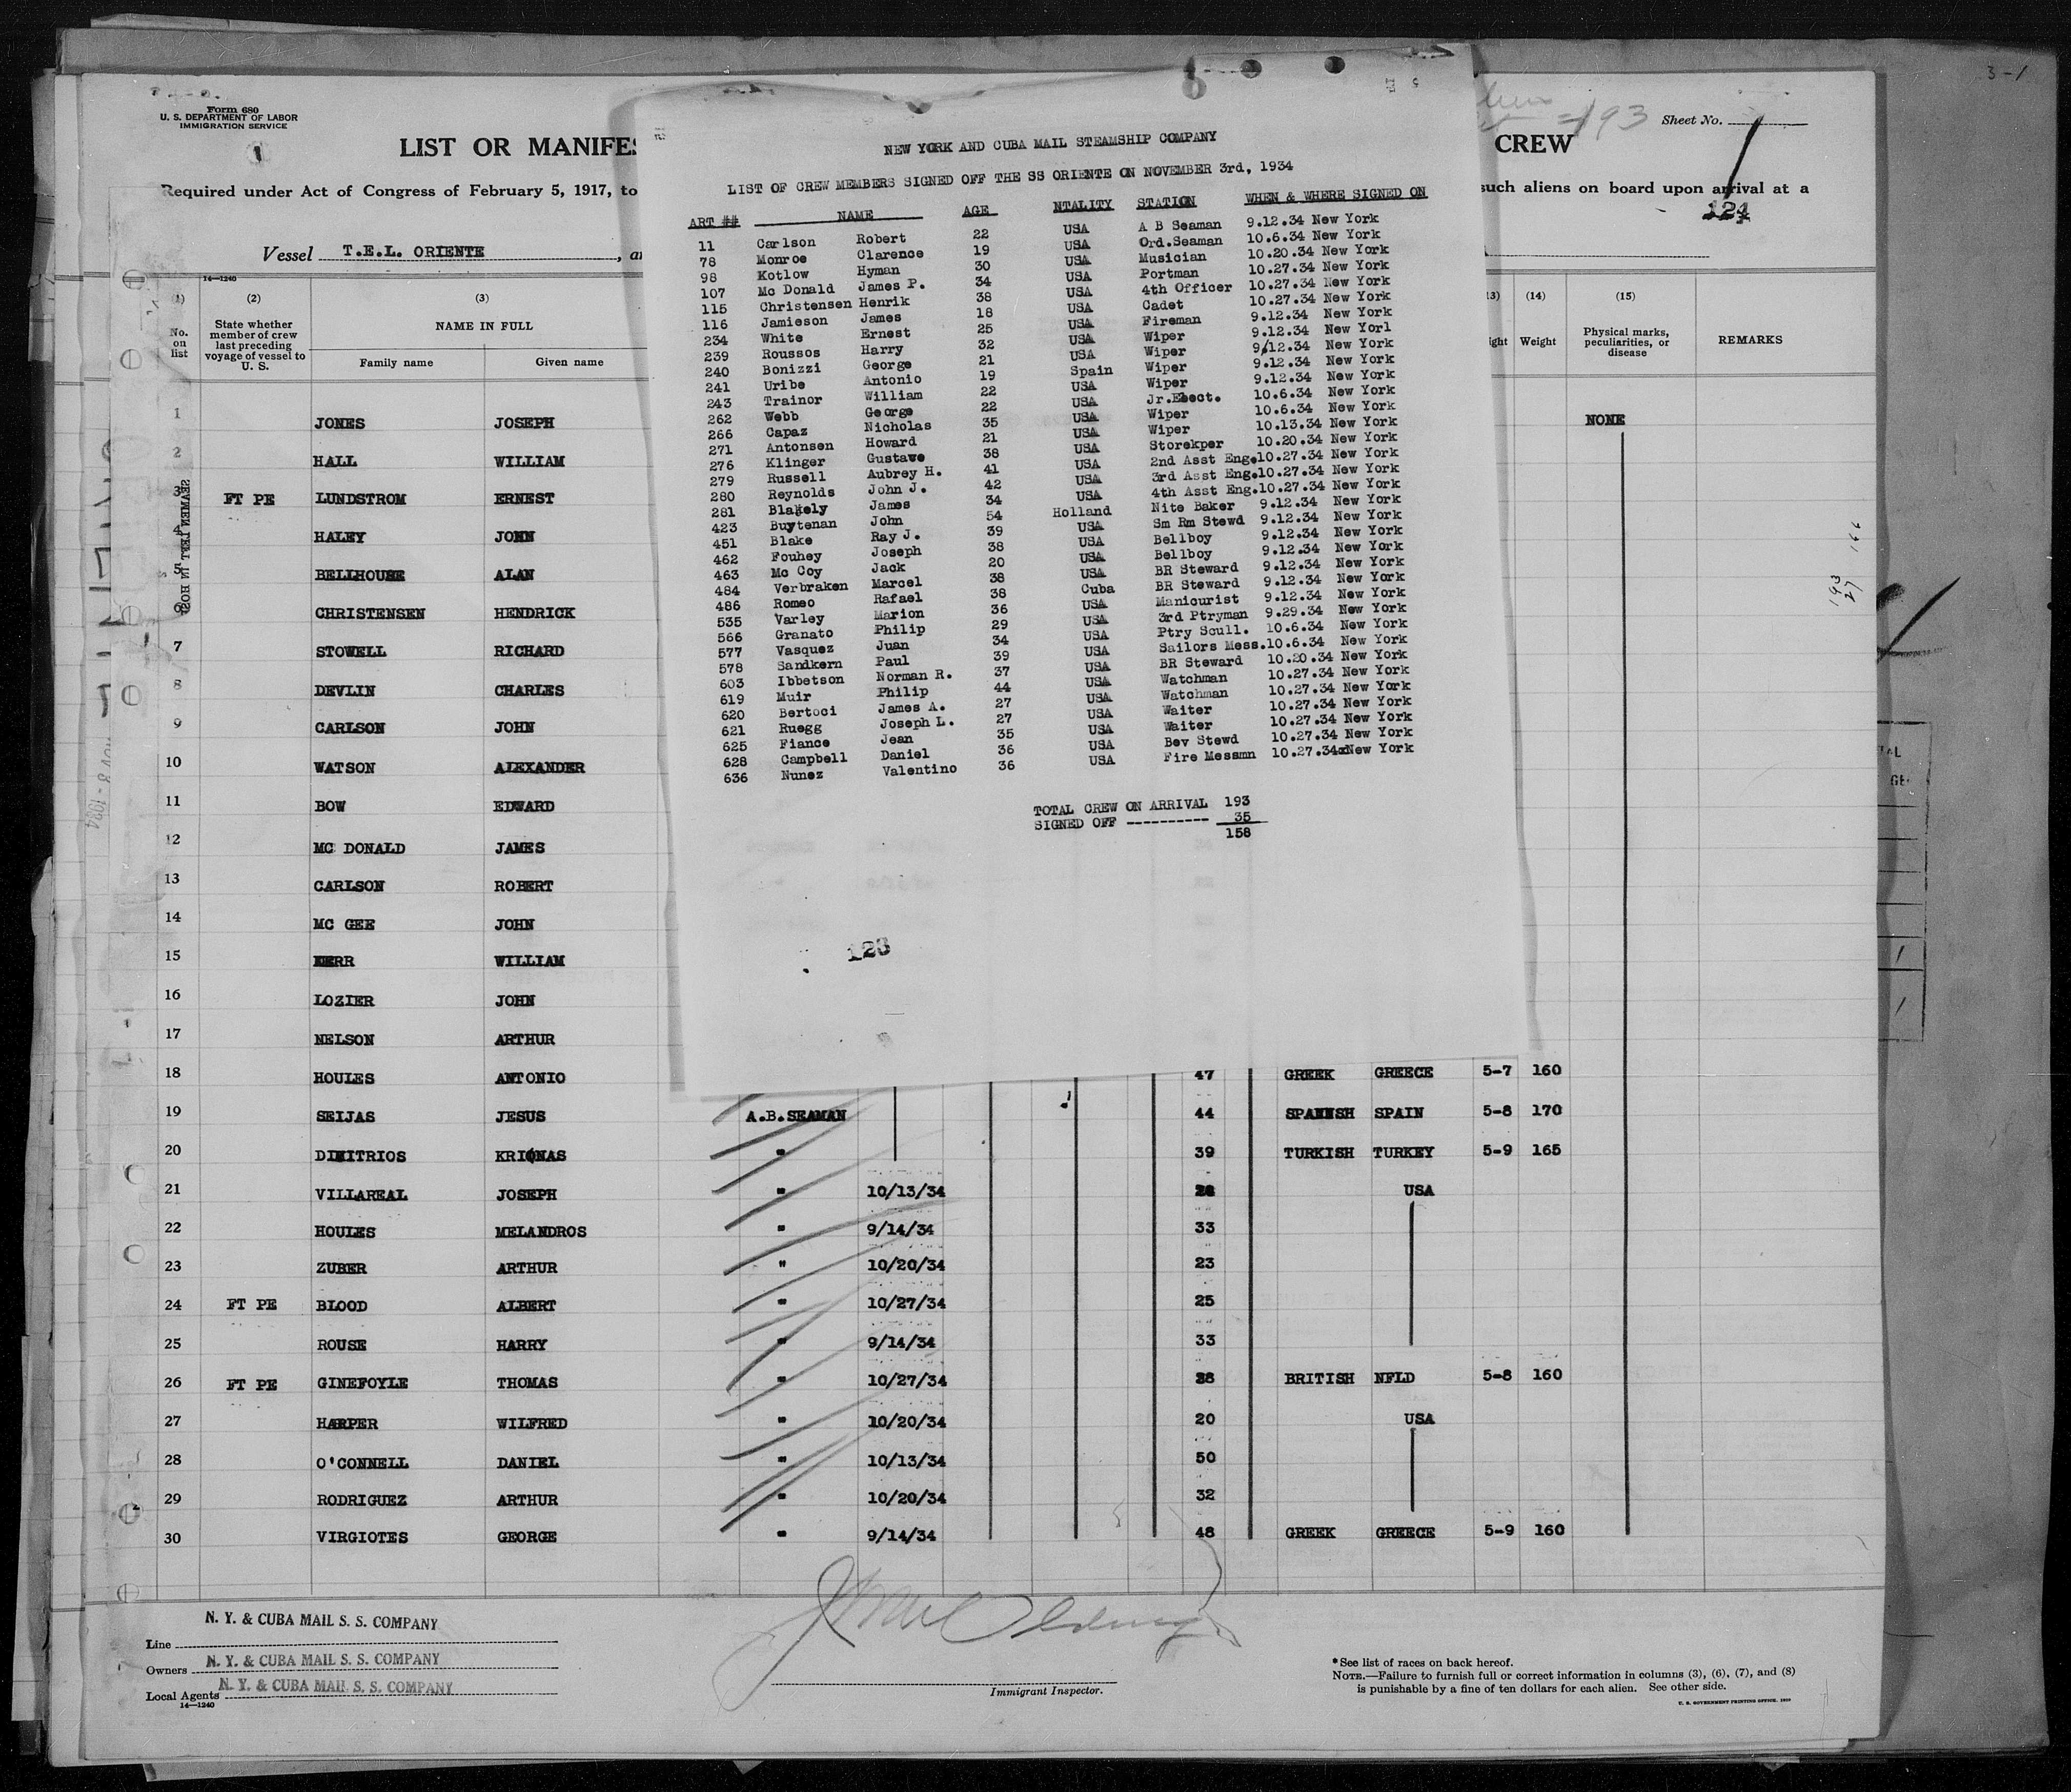 Form 680
U. S. DEPARTMENT OF LABOR
IMMIGRATION SERVICE
1
LIST OR MANIFES
CREW
193
Sheet No. 1
3-1
Required under Act of Congress of February 5, 1917, to
such aliens on board upon arrival at a
124
Vessel T.E.L. ORIENTE, a
14-1240
(1) (2) (3) 13) (14) (15)
No. on list
State whether member of crew last preceding voyage of vessel to U. S.
NAME IN FULL
Family name Given name
ight Weight
Physical marks, peculiarities, or disease
REMARKS
NEW YORK AND CUBA MAIL STEAMSHIP COMPANY
LIST OF CREW MEMBERS SIGNED OFF THE SS ORIENTE ON NOVEMBER 3rd, 1934
ART ## NAME AGE NTALITY STATION WHEN & WHERE SIGNED ON
11 Carlson Robert 22 USA A B Seaman 9.12.34 New York
78 Monroe Clarence 19 USA Ord.Seaman 10.6.34 New York
98 Kotlow Hyman 30 USA Musician 10.20.34 New York
107 Mc Donald James P. 34 USA Portman 10.27.34 New York
115 Christensen Henrik 38 USA 4th Officer 10.27.34 New York
116 Jamieson James 18 USA Cadet 10.27.34 New York
234 White Ernest 25 USA Fireman 9.12.34 New York
239 Roussos Harry 32 USA Wiper 9.12.34 New Yorl
240 Bonizzi George 21 USA Wiper 9/12.34 New York
241 Uribe Antonio 19 Spain Wiper 9.12.34 New York
243 Trainor William 22 USA Wiper 9.12.34 New York
262 Webb George 22 USA Jr.Elect. 10.6.34 New York
266 Capaz Nicholas 35 USA Wiper 10.6.34 New York
271 Antonsen Howard 21 USA Wiper 10.13.34 New York
276 Klinger Gustave 38 USA Storekper 10.20.34 New York
279 Russell Aubrey H. 41 USA 2nd Asst Eng.10.27.34 New York
280 Reynolds John J. 42 USA 3rd Asst Eng.10.27.34 New York
281 Blakely James 34 USA 4th Asst Eng.10.27.34 New York
423 Buytenan John 54 Holland Nite Baker 9.12.34 New York
451 Blake Ray J. 39 USA Sm Rm Stewd 9.12.34 New York
462 Fouhey Joseph 38 USA Bellboy 9.12.34 New York
463 Mc Coy Jack 20 USA Bellboy 9.12.34 New York
484 Verbraken Marcel 38 USA BR Steward 9.12.34 New York
486 Romeo Rafael 38 Cuba BR Steward 9.12.34 New York
535 Varley Marion 36 USA Manicurist 9.12.34 New York
566 Granato Philip 29 USA 3rd Ptryman 9.29.34 New York
577 Vasquez Juan 34 USA Ptry Scull. 10.6.34 New York
578 Sandkern Paul 39 USA Sailors Mess.10.6.34 New York
603 Ibbetson Norman R. 37 USA BR Steward 10.20.34 New York
619 Muir Philip 44 USA Watchman 10.27.34 New York
620 Bertoci James A. 27 USA Watchman 10.27.34 New York
621 Ruegg Joseph L. 27 USA Waiter 10.27.34 New York
625 Fiance Jean 35 USA Waiter 10.27.34 New York
628 Campbell Daniel 36 USA Bev Stewd 10.27.34 New York
636 Nunez Valentino 36 USA Fire Messmn 10.27.34 New York
TOTAL CREW ON ARRIVAL 193
SIGNED OFF ---------- 35
158
123
1 JONES JOSEPH NONE
2 HALL WILLIAM
3 FT PE LUNDSTROM ERNEST
4 HALEY JOHN
5 BELLHOUSE ALAN
6 CHRISTENSEN HENDRICK
7 STOWELL RICHARD
8 DEVLIN CHARLES
9 CARLSON JOHN
10 WATSON ALEXANDER
11 BOW EDWARD
12 MC DONALD JAMES
13 CARLSON ROBERT
14 MC GEE JOHN
15 KERR WILLIAM
16 LOZIER JOHN
17 NELSON ARTHUR
18 HOULES ANTONIO 47 GREEK GREECE 5-7 160
19 SEIJAS JESUS A.B.SEAMAN 44 SPANISH SPAIN 5-8 170
20 DIMITRIOS KRIONAS " 39 TURKISH TURKEY 5-9 165
21 VILLAREAL JOSEPH " 10/13/34 USA
22 HOULES MELANDROS " 9/14/34 33
23 ZUBER ARTHUR " 10/20/34 23
24 FT PE BLOOD ALBERT " 10/27/34 25
25 ROUSE HARRY " 9/14/34 33
26 FT PE GINEFOYLE THOMAS " 10/27/34 38 BRITISH NFLD 5-8 160
27 HARPER WILFRED " 10/20/34 20 USA
28 O'CONNELL DANIEL " 10/13/34 50
29 RODRIGUEZ ARTHUR " 10/20/34 32
30 VIRGIOTES GEORGE " 9/14/34 48 GREEK GREECE 5-9 160
NOV 3 - 1934
193
27
166
Line N. Y. & CUBA MAIL S. S. COMPANY
Owners N. Y. & CUBA MAIL S. S. COMPANY
Local Agents N. Y. & CUBA MAIL S. S. COMPANY
14-1240
Immigrant Inspector.
* See list of races on back hereof.
NOTE.—Failure to furnish full or correct information in columns (3), (6), (7), and (8)
is punishable by a fine of ten dollars for each alien. See other side.
U. S. GOVERNMENT PRINTING OFFICE